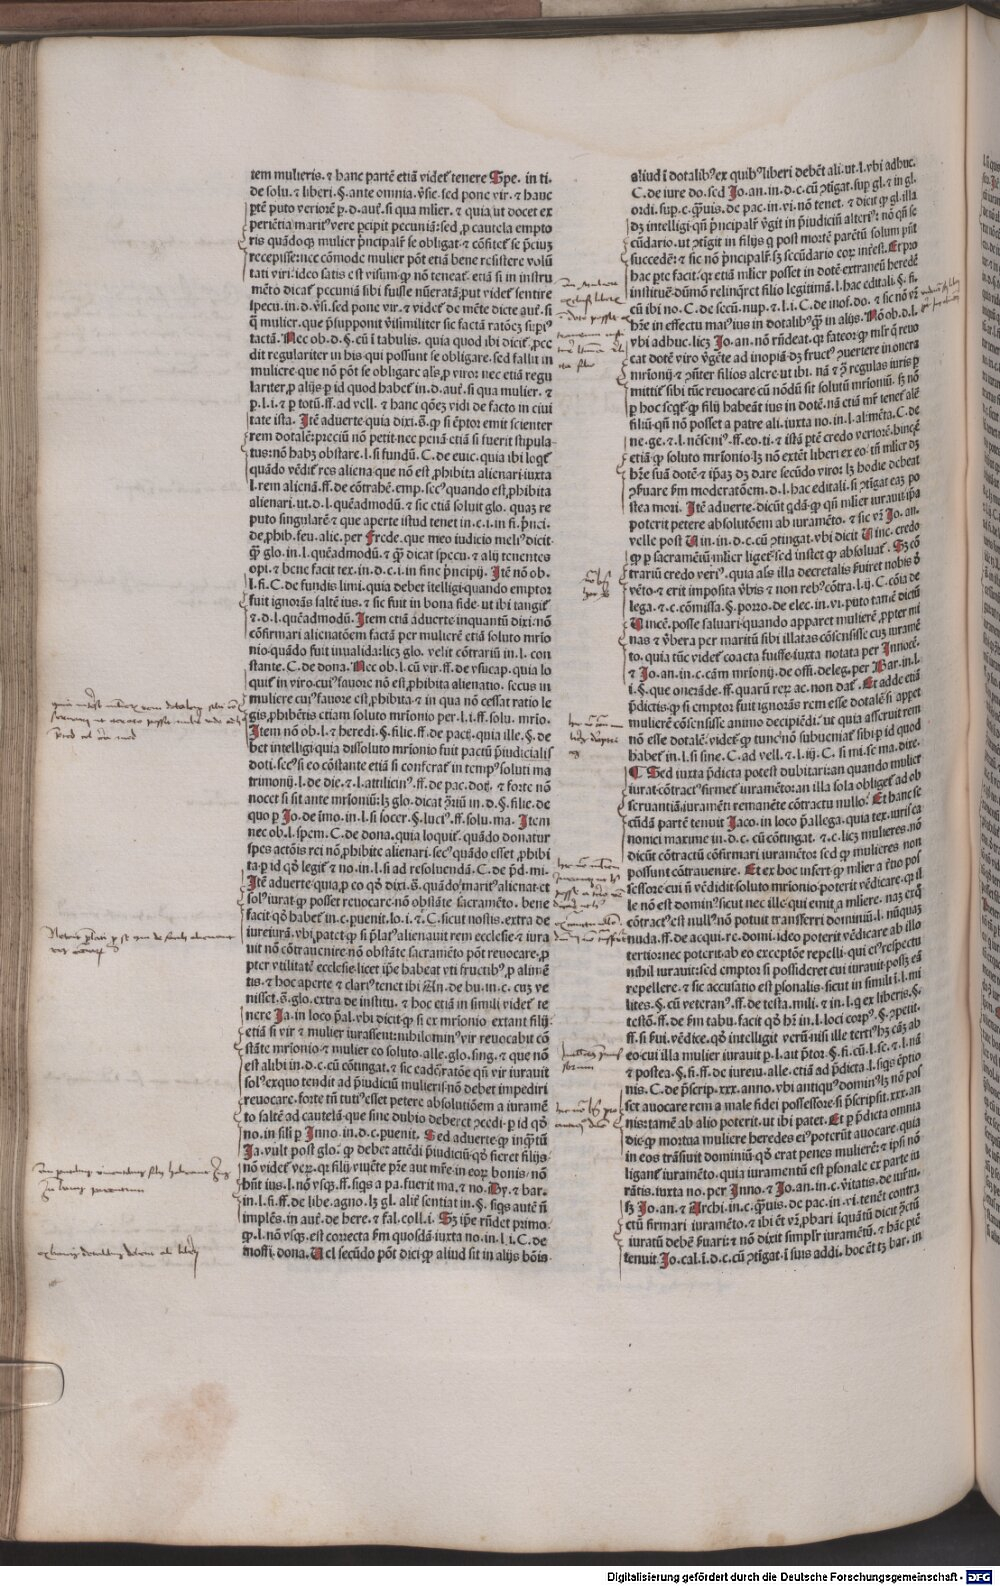 tem mulieris. ⁊ hanc partē etiā videt̄ tenere Spe. in ti.
de solu. ⁊ liberi. §. ante omnia. v̄sic. sed pone vir. ⁊ hanc
ptē puto veriorē p. d. aut̄. si qua mlier. ⁊ quia ut docet ex
periētia maritꝰ vere pcipit pecuniā: sed p cautela empto
ris quādoqꝫ mulier pncipalr̄ se obligat ⁊ cōfitet̄ se p̄ciuꝫ
recepisse: nec cōmode mulier pōt etiā bene resistere volū
tati viri: ideo satis est visum ꝙ nō teneat̄. etiā si in instru
mēto dicat̄ pecuniā sibi fuisse nūeratā: put videt̄ sentire
specu. in d. v̄si. sed pone vir. ⁊ videt̄ de mēte dicte aut̄. si
q̄ mulier. que p̄supponit v̄isimiliter sic factā ratōeꝫ supiꝰ
tactā. Nec ob. d. §. cū i tabulis. quia quod ibi dicit̄ pce
dit regulariter in his qui possunt se obligare. sed fallit in
muliere que nō pōt se obligare als p viro: nec etiā regu
lariter p alijs: p id quod habet̄ in. d. aut̄. si qua mulier. ⁊
p. l. i. ⁊ p totū. ff. ad vell. ⁊ hanc qōeꝫ vidi de facto in ciui
tate ista. Itē aduerte quia dixi. s̄. ꝙ si ēptor emit scienter
rem dotalē: preciū nō petit: nec penā etiā si fuerit stipula
tus: nō habꝫ obstare. l. si fundū. C. de euic. quia ibi loqt̄
quādo vēdit̄ res aliena: que nō est phibita alienari: iuxta
l. rem alienā. ff. de cōtrahē. emp. secꝰ quando est phibita
alienari. ut. d. l. quēadmodū. ⁊ sic etiā soluit glo. quaꝫ re
puto singularē ⁊ que aperte istud tenet in. c. i. in fi. p̄nci.
de phib. feu. alie. per Frede. que meo iudicio meliꝰ dicit
q̄ glo. in. l. quēadmodū. ⁊ q̄ dicat specu. ⁊ alij tenentes
opi. ⁊ bene facit tex. in. d. c. i. in fine p̄ncipij. Itē nō ob.
l. fi. C. de fundis limi. quia debet itelligi quando emptor
fuit ignorās saltē ius. ⁊ sic fuit in bona fide. ut ibi tangit̄
⁊ d. l. quēadmodū. Item etiā aduerte inquantū dixi: nō
cōfirmari alienatōem factā per mulierē etiā soluto mrīo
nio quādo fuit inualida: licꝫ glo. velit cōtrariū in. l. con
stante. C. de dona. Nec ob. l. cū vir. ff. de vsucap. quia lo
quit̄ in viro cuiꝰ fauore nō est phibita alienatio. secus in
muliere cuiꝰ fauore est phibita ⁊ in qua nō cessat ratio le
gis phibētis etiam soluto mrīonio per. l. i. ff. solu. mrīo.
Item nō ob. l. ⁊ heredi. §. filie. ff. de pact. quia ille. §. de
bet intelligi quia dissoluto mrīonio fuit pactū p̄iudicialis
doti. secꝰ si eo cōstante etiā si conferat̄ in tempꝰ soluti ma
trimonij. l. de die. ⁊ l. attiliciꝰ. ff. de pac. dot. ⁊ forte nō
nocet si sit ante mrīoniū: lꝫ glo. dicat ꝯriū in. d. §. filie. de
quo p Jo. de ymo. in. l. si socer. §. luciꝰ. ff. solu. ma. Item
nec ob. l. spem. C. de dona. quia loquit̄ quādo donatur
spes actōis rei nō phibite alienari. secꝰ quādo esset phibi
ta: p id qd̄ legit̄ ⁊ no. in. l. si ad resoluendā. C. de p̄d. mi.
Itē aduerte quia p eo qd̄ dixi. s̄. quādo maritꝰ alienat et
solꝰ iurat ꝙ posset reuocare nō obstāte sacramēto. bene
facit qd̄ habet̄ in. c. puenit. lo. i. ⁊. C. sicut nostis. extra de
iureiurā. vbi patet ꝙ si p̄latꝰ alienauit rem ecclesie ⁊ iura
uit nō cōtrauenire nō obstāte sacramēto pōt reuocare p
pter vtilitatē ecclesie. licet ip̄e habeat vti fructibꝰ p alimē
tis. ⁊ hoc aperte ⁊ clariꝰ tenet ibi An. de bu. in. c. cuꝫ ve
nisset. s̄. glo. extra de institu. ⁊ hoc etiā in simili videt̄ te
nere Ja. in loco p̄al. vbi dicit ꝙ si ex mrīonio extant filij
etiā si vir ⁊ mulier iurassent: nihilominꝰ vir reuocabit cō
stāte mrīonio ⁊ mulier eo soluto. alle. glo. sing. ⁊ que nō
est alibi in. d. c. cū cōtingat. ⁊ sic cadē ratōe qn̄ vir iurauit
solꝰ exquo tendit ad p̄iudiciū mulieris: nō debet impediri
reuocare. forte tn̄ tutiꝰ esset petere absolutiōem a iuramē
to saltē ad cautelā que sine dubio deberet ꝓcedi p id qd̄
no. in sili p Inno. in. d. c. puenit. Sed aduerte ꝙ inqtū
Ja. vult post glo. ꝙ debet attēdi p̄iudiciū qd̄ fieret filijs
nō videt̄ veꝝ. qꝛ filij viuēte p̄re aut mr̄e in eoꝝ bonis nō
hn̄t ius. l. nō vsqꝫ. ff. siqs a pa. fuerit ma. ⁊ no. By. ⁊ bar.
in. l. si. ff. de libe. agno. lꝫ gl. alit̄ sentiat in. §. siqs autē n̄
implēs. in aut̄. de here. ⁊ fal. coll. i. Sꝫ ip̄e rn̄det primo
ꝙ. l. nō vsqꝫ. est correcta fm quosdā iuxta no. in. l. i. C. de
inoffi. dona. Uel secūdo pōt dici ꝙ aliud sit in alijs bōis
aliud ī dotalibꝰ ex quibꝰ liberi debēt ali. ut. l. vbi adhuc.
C. de iure do. sed Jo. an. in. d. c. cū ꝯtigat. sup gl. ⁊ in gl.
ordi. sup. c. q̄uis. de pac. in. vi. nō tenet. ⁊ dicit ꝙ gl. illa
dꝫ intelligi qn̄ p̄ncipalr̄ v̄git in p̄iudiciū alteriꝰ: nō qn̄ se
cūdario. ut ꝯtigit in filijs q post mortē parētū solum pn̄t
succedē: ⁊ sic nō p̄ncipalr̄ sꝫ secūdario eoꝝ int̄est. Et pro
hac pte facit. qꝛ etiā mlier posset in dotē extraneū heredē
instituē: dūmō relinqret filio legitimā. l. hac edictali. §. fi.
cū ibi no. C. de secū. nup. ⁊. l. i. C. de inof. do. ⁊ sic nō vr̄
hr̄e in effectu maiꝰ ius in dotalibꝰ q̄ in alijs. Nō ob. d. l.
vbi adhuc. licꝫ Jo. an. nō rn̄deat. qꝛ fateor ꝙ mlr̄ q̄ reuo
cat dotē viro v̄gēte ad inopiā dꝫ fructꝰ ꝯuertere in onera
mrīonij ⁊ ꝯn̄ter filios alere. ut ibi. nā ⁊ ꝯ̄ regulas iuris p
mittit̄ sibi tūc reuocare cū nōdū sit solutū mrīoniū. sꝫ nō
p hoc seqt̄ ꝙ filij habeāt ius in dotē. nā etiā mr̄ tenet̄ alē
filiū qn̄ nō posset a patre ali. iuxta no. in. l. alimēta. C. de
ne. ge. ⁊. l. nēsēniꝰ. ff. eo. ti. ⁊ istā ptē credo veriorē. hincē
etiā ꝙ soluto mrīonio lꝫ nō extēt liberi ex eo: tn̄ mlier dꝫ
hr̄e suā dotē ⁊ ip̄aꝫ dꝫ dare secūdo viro: lꝫ hodie debeat
ꝯseruare fm moderatōem. d. l. hac edictali. si ꝯtigat eaꝫ po
stea mori. Itē aduerte. dicūt qdā ꝙ qn̄ mlier iurauit ip̄a
poterit petere absolutōem ab iuramēto. ⁊ sic vr̄ Jo. an.
velle post Uin. in. d. c. cū ꝯtingat. vbi dicit Uinc. credo
ꝙ p sacramētū mlier liget̄. sed instet ꝙ absoluat̄. Sꝫ cō
trariū credo veriꝰ. quia als illa decretalis ẜuiret nobis d̄
vēto ⁊ erit imposita v̄bis ⁊ non rebꝰ cōtra. l. ij. C. cōia de
lega. ⁊ c. cōmissa. §. porro. de elec. in. vi. puto tamē dictū
Uincē. posse saluari quando apparet mulierē ppter mi
nas ⁊ v̄bera per maritū sibi illatas cōsensisse cuꝫ iuramē
to. quia tūc videt̄ coacta fuisse: iuxta notata per Innocē.
⁊ Jo. an. in. c. cām mrīonij. de offi. deleg. per Bar. in. l.
i. §. que onerāde. ff. quarū reꝝ ac. non dat̄. Et adde etiā
p̄dictis ꝙ si emptor fuit ignorās rem esse dotalē si appet
mulierē cōsensisse animo decipiēdi: ut quia asseruit rem
nō esse dotalē: videt̄ ꝙ tunc nō subueniat̄ sibi: p id quod
habet̄ in. l. si sine. C. ad vell. ⁊ l. iij. C. si mi. se ma. dixe.
¶ Sed iuxta p̄dicta potest dubitari: an quando mulier
iurat: cōtractꝰ firmet̄ iuramēto: an illa sola obliget̄ ad ob
seruantiā iuramēti remanēte cōtractu nullo? Et hanc se
cūdā partē tenuit Jaco. in loco p̄allega. quia tex. iuris ca
nonici maxime in. d. c. cū cōtingat. ⁊ c. licꝫ mulieres. nō
dicūt cōtractū cōfirmari iuramēto: sed ꝙ mulieres non
possunt cōtrauenire. Et ex hoc infert ꝙ mlier a t̄tio pos
sessore cui n̄ vēdidit soluto mrīonio poterit vēdicare. ꝙ il
le nō est dominꝰ: sicut nec ille qui emit a mliere. naꝫ exq̄
cōtractꝰ est nullꝰ nō potuit transferri dominiū. l. nūquā
nuda. ff. de acqui. re. domi. ideo poterit vēdicare ab illo
tertio: nec poterit ab eo exceptōe repelli qui eiꝰ respectu
nihil iurauit: sed emptor si possideret cui iurauit posꝫ eā
repellere. ⁊ sic accusatio est p̄sonalis. sicut in simili i. l. mi
lites. §. cū veteranꝰ. ff. de testa. mili. ⁊ in. l. q ex liberis. §.
testō. ff. de fm tabu. facit qd̄ hr̄ in. l. loci corpꝰ. §. ꝯpetit.
ff. si ẜui. vēdice. qd̄ intelligit verū nisi ille tertiꝰ hꝫ cāꝫ ab
eo cui illa mulier iurauit p. l. ait p̄tor. §. fi. cū. l. se. ⁊. l. nā
⁊ postea. §. fi. ff. de iureiu. alle. etiā ad p̄dicta. l. siqs ēptio
nis. C. de p̄scrip. xxx. anno. vbi antiquꝰ dominꝰ lꝫ nō pos
set auocare rem a male fidei possessore si p̄scripsit. xxx. an
nis: tamē ab alio poterit. ut ibi patet. Et p p̄dicta omnia
dic ꝙ mortua muliere heredes eiꝰ poterūt auocare. quia
in eos trāsiuit dominiū qd̄ erat penes mulierē: ⁊ ipsi nō
ligant̄ iuramēto. quia iuramentū est p̄sonale ex parte iu
rātis. iuxta no. per Inno. ⁊ Jo. an. in. c. v̄itatis. de iur̄m.
sꝫ Jo. an. ⁊ Archi. in. c. q̄uis. de pac. in. vi. tenēt contra
ctū firmari iuramēto. ⁊ ibi ēt vr̄ pbari iquātū dicit ꝯctū
iuratū debē ẜuari: ⁊ nō dixit simplr̄ iuramētū. ⁊ hāc ptē
tenuit. Jo. cal. ī. d. c. cū ꝯtigat. ī suis addi. hoc ēt tꝫ bar. in
Digitalisierung gefördert durch die Deutsche Forschungsgemeinschaft - DFG